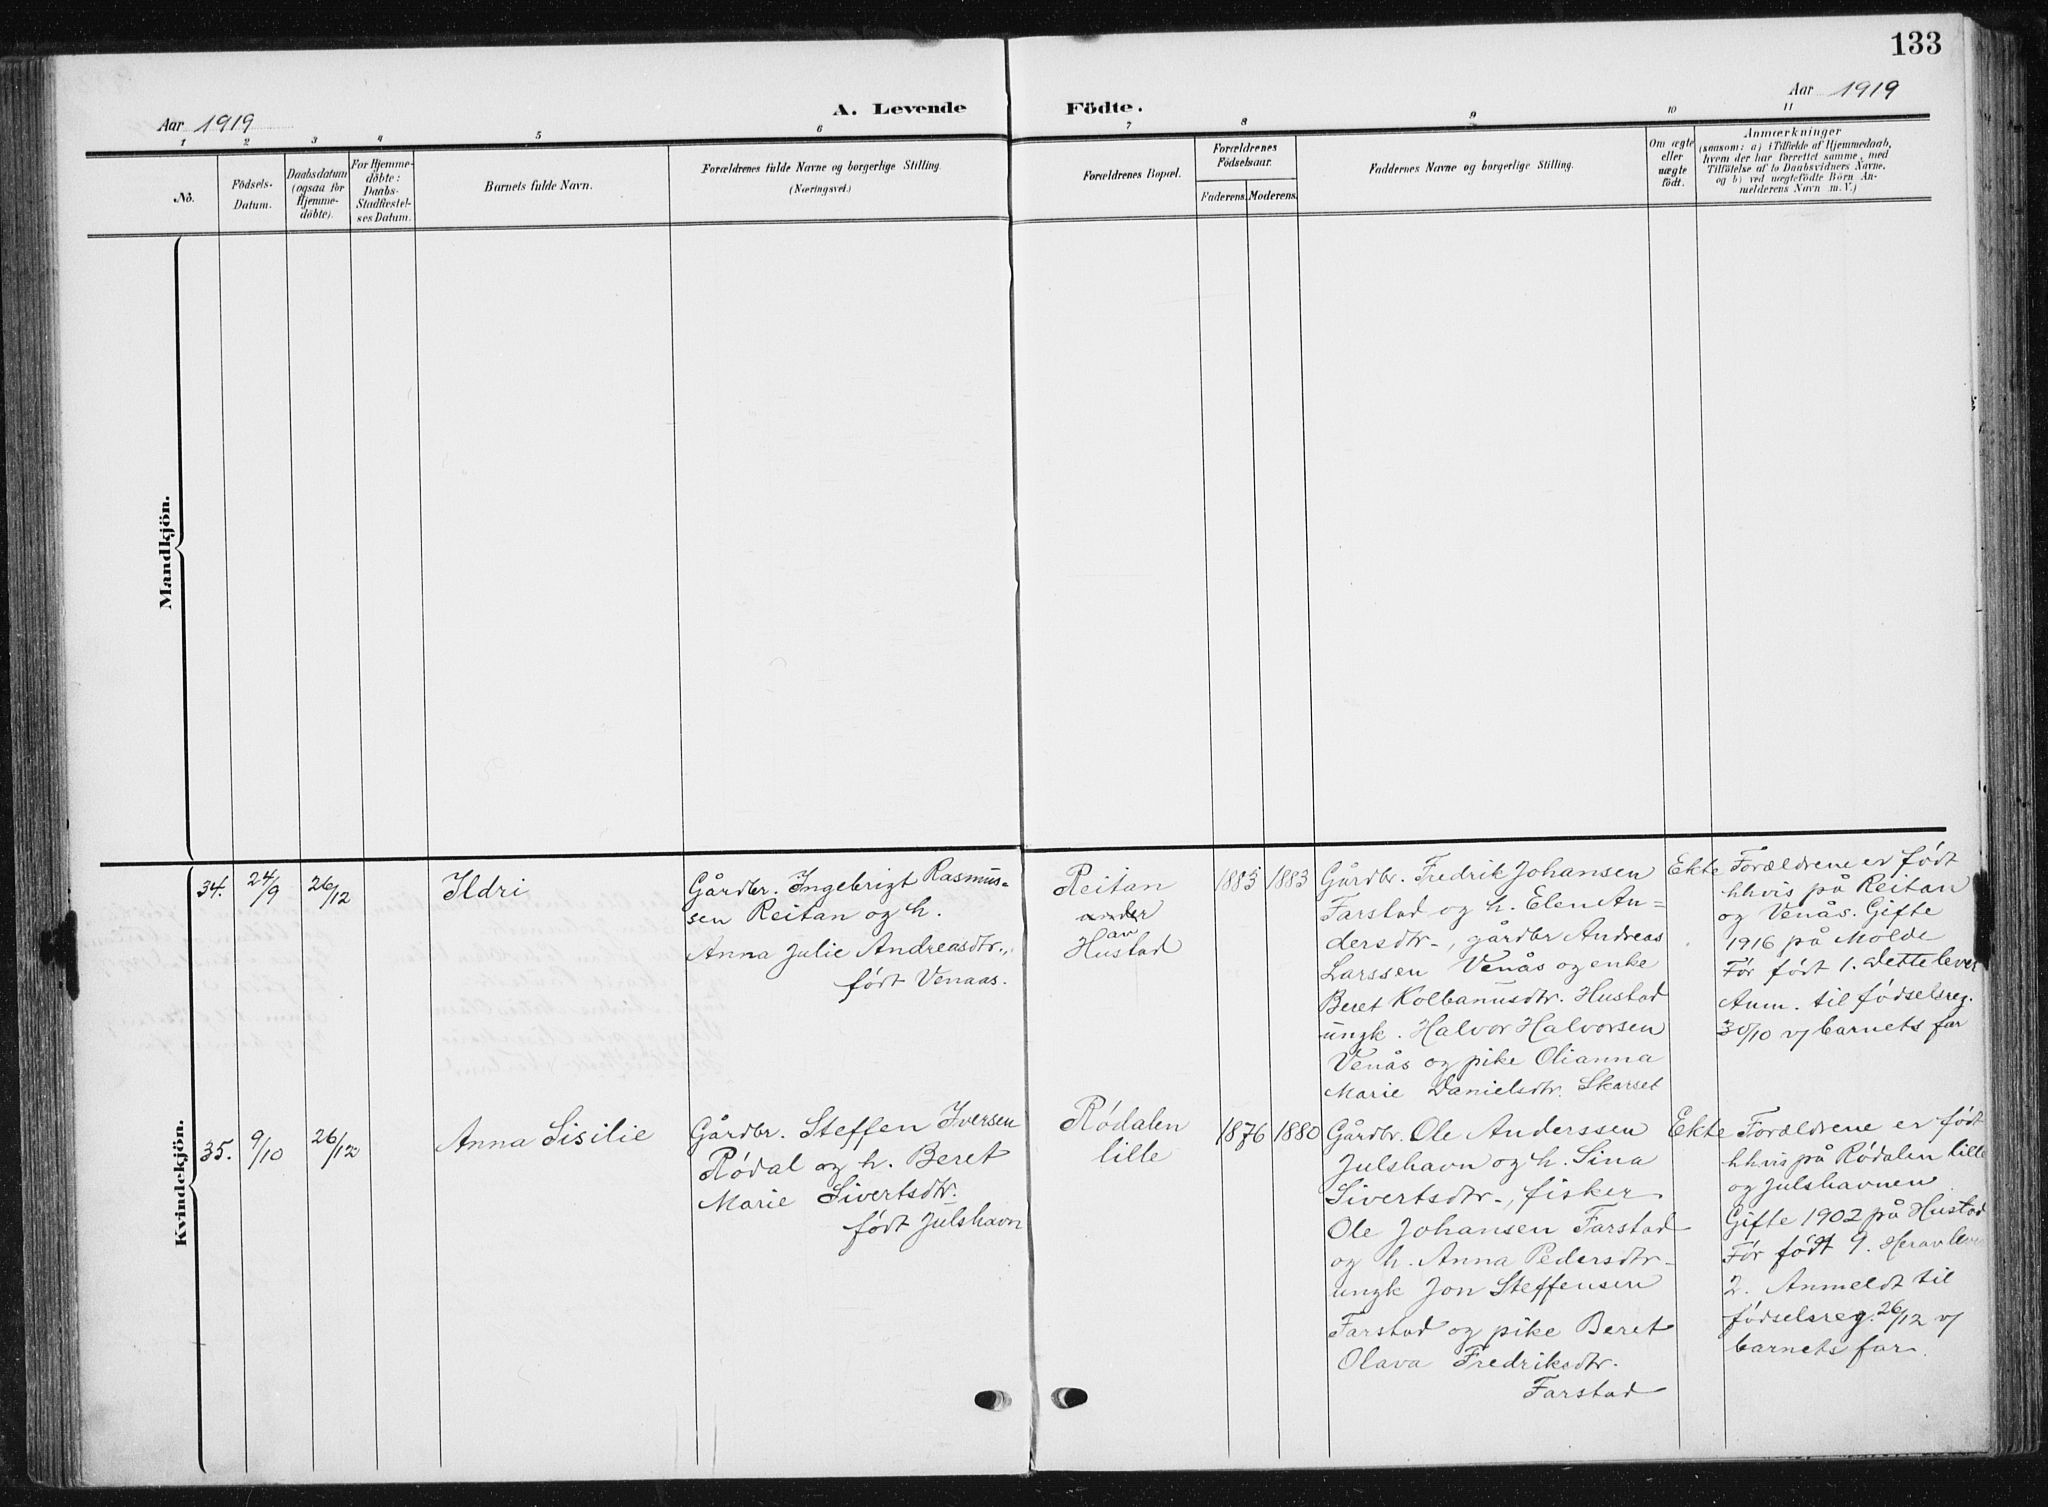 133
Aar 1919
A. Levende Födte.
Aar 1919
1 2 3 4 5 6 7 8 9 10 11
No.
Födsels-
Datum.
Daabsdatum
(ogsaa for
Hjemme-
döbte).
For Hjemme-
döbte:
Daabs-
Stadfæstel-
ses Datum.
Barnets fulde Navn.
Forældrenes fulde Navne og borgerlige Stilling.
(Næringsvei.)
Forældrenes Bopæl.
Forældrenes
Födselsaar.
Faderens. Moderens.
Faddernes Navne og borgerlige Stilling.
Om ægte
eller
uægte
födt.
Anmærkninger
(saasom: a) i Tilfælde af Hjemmedaab,
hvem der har forrettet samme, med
Tilföielse af to Daabsvidners Navne.
og b) ved uægtefödte Börn An-
melderens Navn m. V.)
Mandkjön.
Kvindekjön.
34.
24/9
26/12
Ildri
Gårdbr. Ingebrigt Rasmus-
sen Reitan og h.
Anna Julie Andreasdtr.,
født Venaas.
Reitan
under
av
Hustad
1885
1883
Gårdbr. Fredrik Johansen
Farstad og h. Elen An-
dersdtr., gårdbr Andreas
Larssen Venås og enke
Beret Kolbanusdtr. Hustad
ungk. Halvor Halvorsen
Venås og pike Olianna
Marie Danielsdtr. Skarset
Ekte
Forældrene er født
hhvis på Reitan
og Venås. Gifte
1916 på Molde
Før født 1. Dette lever
Anm. til fødselsreg.
30/10 v/ barnets far
35.
9/10
26/12
Anna Sisilie
Gårdbr. Steffen Iversen
Rødal og h. Beret
Marie Sivertsdtr.
født Julshavn
Rødalen
lille
1876
1880
Gårdbr. Ole Anderssen
Julshavn og h. Sina
Sivertsdtr., fisker
Ole Johansen Farstad
og h. Anna Pedersdtr.
ungk Jon Steffensen
Farstad og pike Beret
Olava Fredriksdtr.
Farstad
Ekte
Forældrene er født
hhvis på Rødalen lille
og Julshavnen
Gifte 1902 på Hustad
Før født 9. Herav leve
2. Anmeldt til
fødselsreg. 26/12 v/
barnets far.